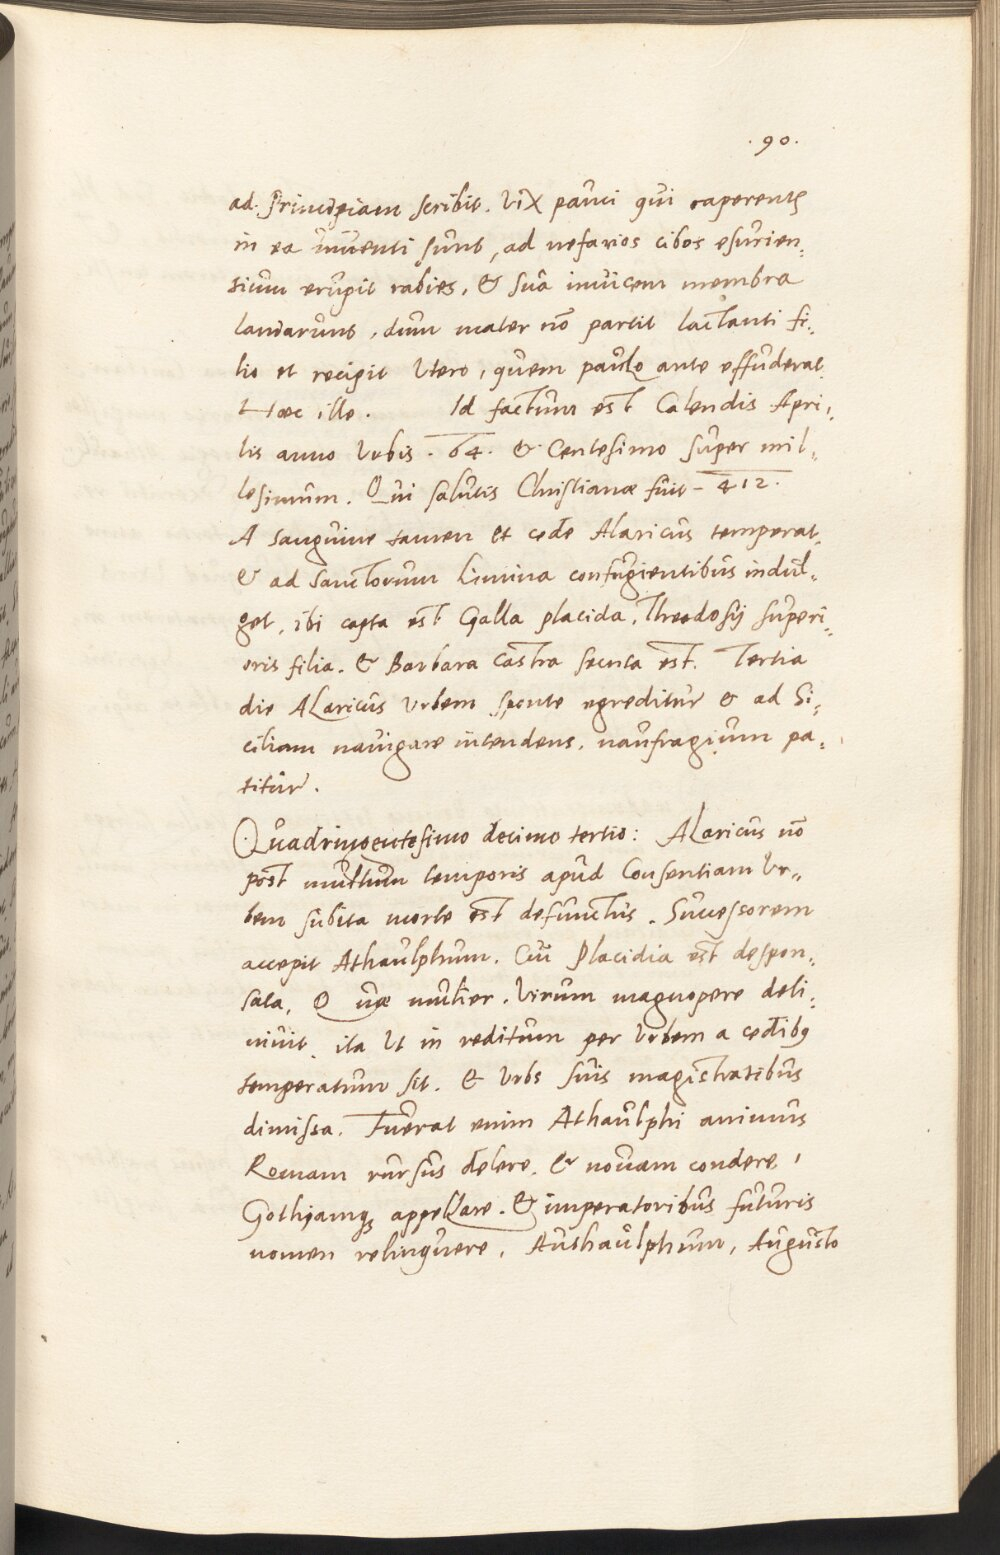 .90.
ad. Principiam scribit. Vix pauci qui caperentʒ
in ea inuenti sunt, ad nefarios cibos esurien,
tium erupit rabies, & sua inuicem membra
laniarunt, dum mater nō parcit lactanti fi,
lio et recipit Utero, quem paulo ante effuderat
Haec ille. Id factum est Calendis Apri,
lis anno Urbis . 64. & Centesimo super mil,
lesimum. Qui salutis Christianae fuit - 412.
A sanguine tamen et cede Alaricus temperat,
& ad Sanctorum Limina confugientibus indul,
get, ibi capta est Galla placida, Theodosij superi,
oris filia. & Barbara castra secuta est. Tertia
die Alaricus Urbem sponte egreditur & ad Si,
ciliam nauigare intendens. naufragium pa,
titur.
Quadringentesimo decimo tertio: Alaricus nō
post multum temporis apud Consentiam Ur,
bem subita morte est defunctus. Successorem
accepit Athaulphum. Cui Placidia est despon,
sata, Quae mulier. Virum magnopere deli,
niuit, ita Ut in reditum per Urbem a cedibꝫ
temperatum sit. & Urbs suis magistratibus
dimissa. Fuerat enim Athaulphi animus
Romam rursus delere, & nouam condere,
Gothiamqꝫ appellare. & imperatoribus futuris
nomen relinquere, Aushaulphum, Augusto